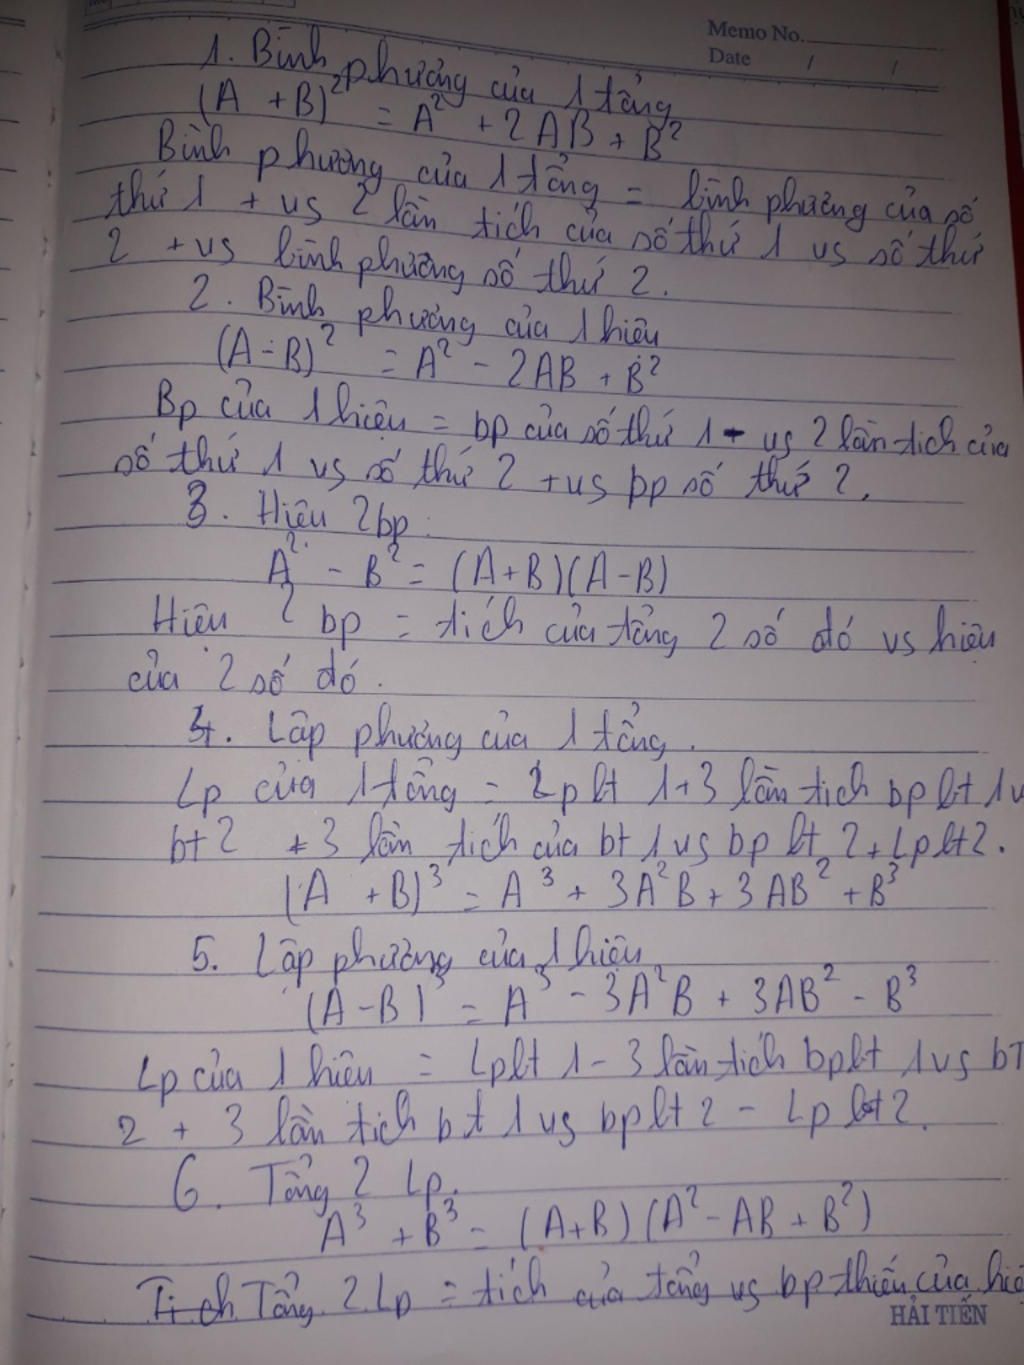 Memo No.
Date / /
1. Bình phương của 1 tổng
(A + B)² = A² + 2AB + B²
Bình phương của 1 tổng = bình phương của số
thứ 1 + vs 2 lần tích của số thứ 1 vs số thứ
2 + vs bình phương số thứ 2.
2. Bình phương của 1 hiệu
(A - B)² = A² - 2AB + B²
Bp của 1 hiệu = bp của số thứ 1 - vs 2 lần tích của
số thứ 1 vs số thứ 2 + vs bp số thứ 2.
3. Hiệu 2 bp
A² - B² = (A+B)(A-B)
Hiệu 2 bp = tích của tổng 2 số đó vs hiệu
của 2 số đó.
4. Lập phương của 1 tổng.
Lp của 1 tổng = Lp bt 1 + 3 lần tích bp bt 1 v
bt 2 + 3 lần tích của bt 1 vs bp bt 2 + Lp bt 2.
(A + B)³ = A³ + 3A²B + 3AB² + B³
5. Lập phương của 1 hiệu
(A - B)³ = A³ - 3A²B + 3AB² - B³
Lp của 1 hiệu = Lp bt 1 - 3 lần tích bp bt 1 vs bt
2 + 3 lần tích bt 1 vs bp bt 2 - Lp bt 2.
6. Tổng 2 Lp.
A³ + B³ = (A+B)(A² - AB + B²)
Tích Tổng 2 Lp = tích của tổng vs bp thiếu của hiệ
HẢI TIẾN